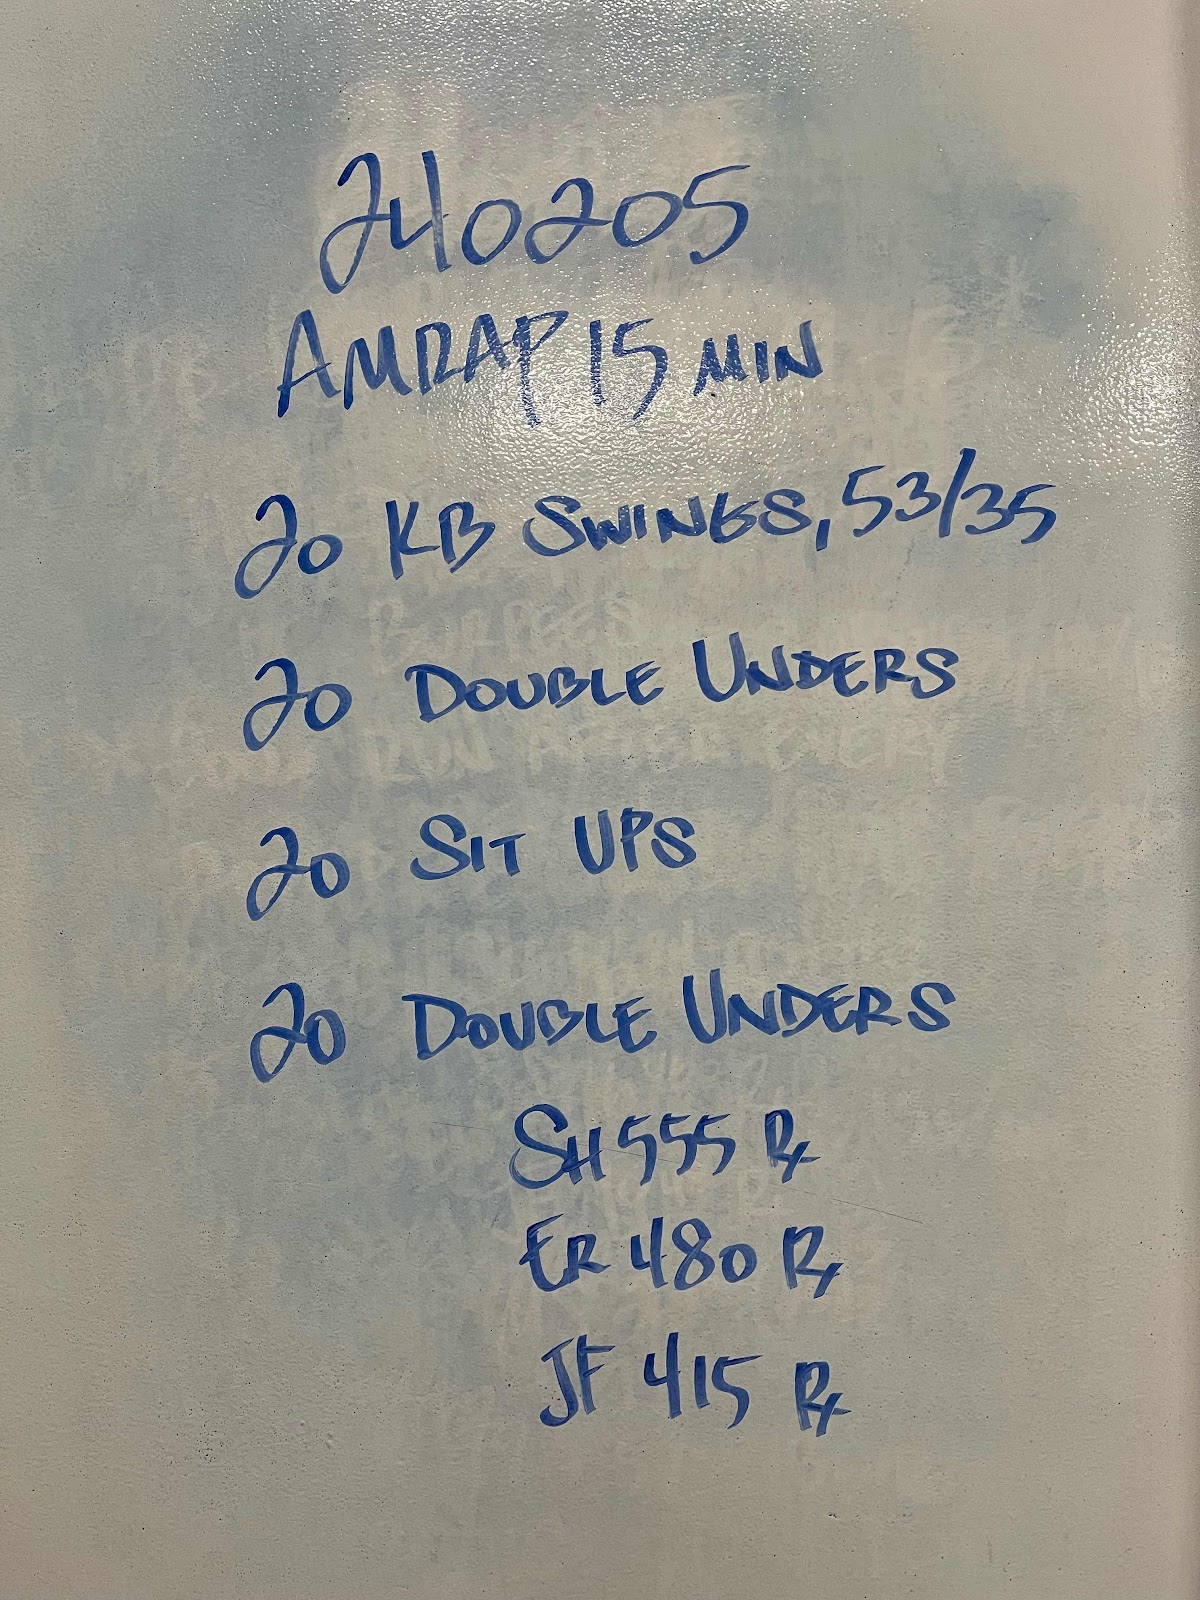 240205
AMRAP 15 MIN
20 KB SWINGS, 53/35
20 DOUBLE UNDERS
20 SIT UPS
20 DOUBLE UNDERS
SH 555 Rx
ER 480 Rx
JF 415 Rx